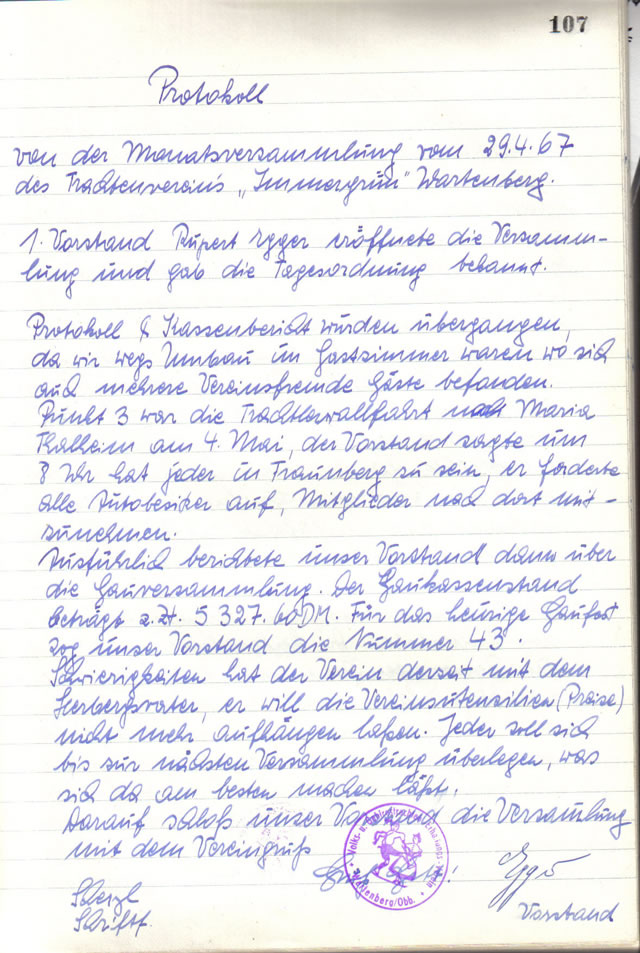 107
Protokoll
von der Monatsversammlung vom 29.4.67
des Trachtenvereins „Immergrün" Wartenberg.
1. Vorstand Rupert Egger eröffnete die Versamm-
lung und gab die Tagesordnung bekannt.
Protokoll & Kassenbericht wurden übergangen,
da wir wegs Umbau im Gastzimmer waren wo sich
auch mehrere Vereinsfremde Gäste befanden.
Punkt 3 war die Trachtlerwallfahrt nach Maria
Thalheim am 4. Mai, der Vorstand sagte um
8 Uhr hat jeder in Fraunberg zu sein, er forderte
alle Autobesitzer auf, Mitglieder nach dort mit-
zunehmen.
Ausführlich berichtete unser Vorstand dann über
die Gauversammlung. Der Gaukassenstand
beträgt z.Zt. 5 327.60 DM. Für das heurige Gaufest
zog unser Vorstand die Nummer 43.
Schwierigkeiten hat der Verein derzeit mit dem
Herbergsvater, er will die Vereinsutensilien (Preise)
nicht mehr aufhängen laßen. Jeder soll sich
bis zur nächsten Versammlung überlegen, was
sich da am besten machen läßt.
Darauf schloß unser Vorstand die Versamlung
mit dem Vereingruß
Volks- u. Wartenberg/Obb.
Egger
Schriftf.
Vorstand